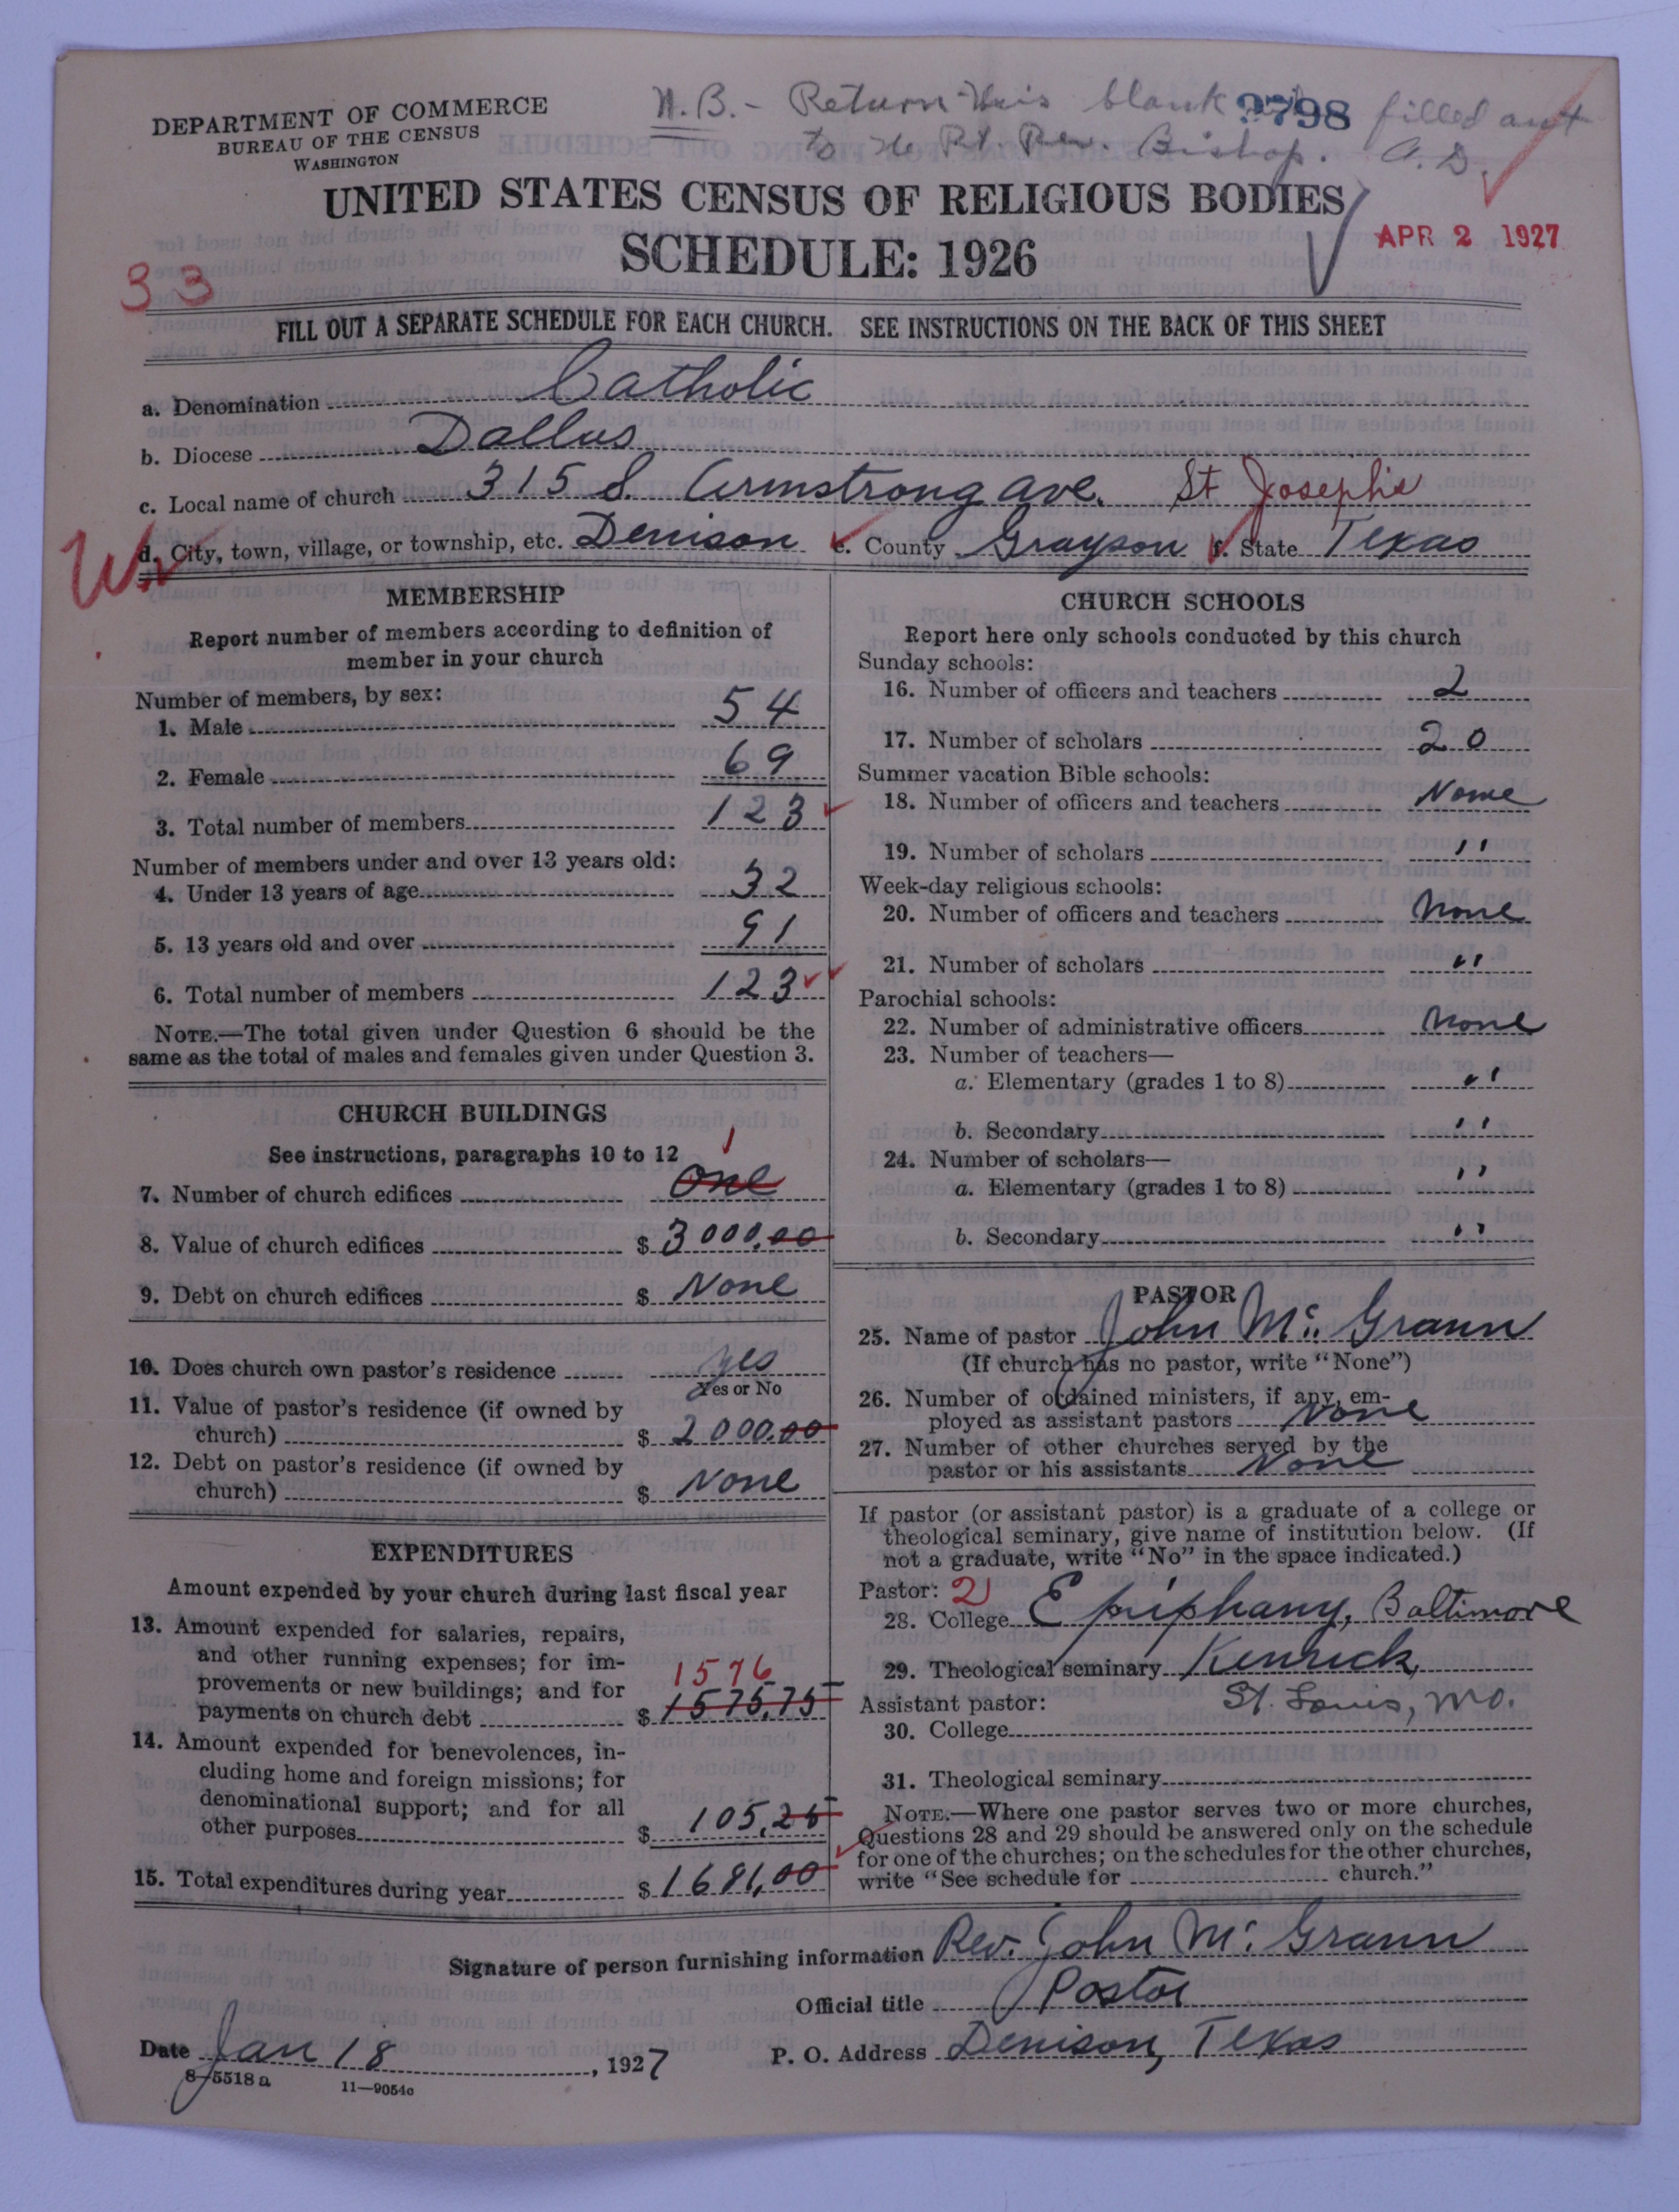 DEPARTMENT OF COMMERCE
BUREAU OF THE CENSUS
WASHINGTON
N.B. - Return this blank filled out
to the Rt. Rev. Bishop. A.D.
9798
UNITED STATES CENSUS OF RELIGIOUS BODIES
SCHEDULE: 1926
APR 2 1927
33
FILL OUT A SEPARATE SCHEDULE FOR EACH CHURCH. SEE INSTRUCTIONS ON THE BACK OF THIS SHEET
a. Denomination Catholic
b. Diocese Dallas
c. Local name of church 315 S. Armstrong Ave. St Josephs
d. City, town, village, or township, etc. Denison e. County Grayson f. State Texas
MEMBERSHIP
Report number of members according to definition of
member in your church
Number of members, by sex:
1. Male 54
2. Female 69
3. Total number of members 123
Number of members under and over 13 years old:
4. Under 13 years of age 32
5. 13 years old and over 91
6. Total number of members 123
NOTE.—The total given under Question 6 should be the
same as the total of males and females given under Question 3.
CHURCH BUILDINGS
See instructions, paragraphs 10 to 12
1
7. Number of church edifices One
8. Value of church edifices $ 3000.00
9. Debt on church edifices $ None
10. Does church own pastor's residence yes
Yes or No
11. Value of pastor's residence (if owned by
church) $ 2000.00
12. Debt on pastor's residence (if owned by
church) $ None
EXPENDITURES
Amount expended by your church during last fiscal year
13. Amount expended for salaries, repairs,
and other running expenses; for im-
provements or new buildings; and for
1576
payments on church debt $ 1575.75
14. Amount expended for benevolences, in-
cluding home and foreign missions; for
denominational support; and for all
other purposes $ 105.25
15. Total expenditures during year $ 1681.00
CHURCH SCHOOLS
Report here only schools conducted by this church
Sunday schools:
16. Number of officers and teachers 2
17. Number of scholars 20
Summer vacation Bible schools:
18. Number of officers and teachers None
19. Number of scholars ''
Week-day religious schools:
20. Number of officers and teachers None
21. Number of scholars ''
Parochial schools:
22. Number of administrative officers None
23. Number of teachers—
a. Elementary (grades 1 to 8) ''
b. Secondary ''
24. Number of scholars—
a. Elementary (grades 1 to 8) ''
b. Secondary ''
PASTOR
25. Name of pastor John Mc. Grann
(If church has no pastor, write "None")
26. Number of ordained ministers, if any, em-
ployed as assistant pastors None
27. Number of other churches served by the
pastor or his assistants None
If pastor (or assistant pastor) is a graduate of a college or
theological seminary, give name of institution below. (If
not a graduate, write "No" in the space indicated.)
Pastor: 2
28. College Epiphany, Baltimore
29. Theological seminary Kenrick,
Assistant pastor: St. Louis, Mo.
30. College
31. Theological seminary
NOTE.—Where one pastor serves two or more churches,
Questions 28 and 29 should be answered only on the schedule
for one of the churches; on the schedules for the other churches,
write "See schedule for church."
Signature of person furnishing information Rev. John Mc. Grann
Official title Pastor
Date Jan 18, 1927 P. O. Address Denison, Texas
8-5518a 11—9054c